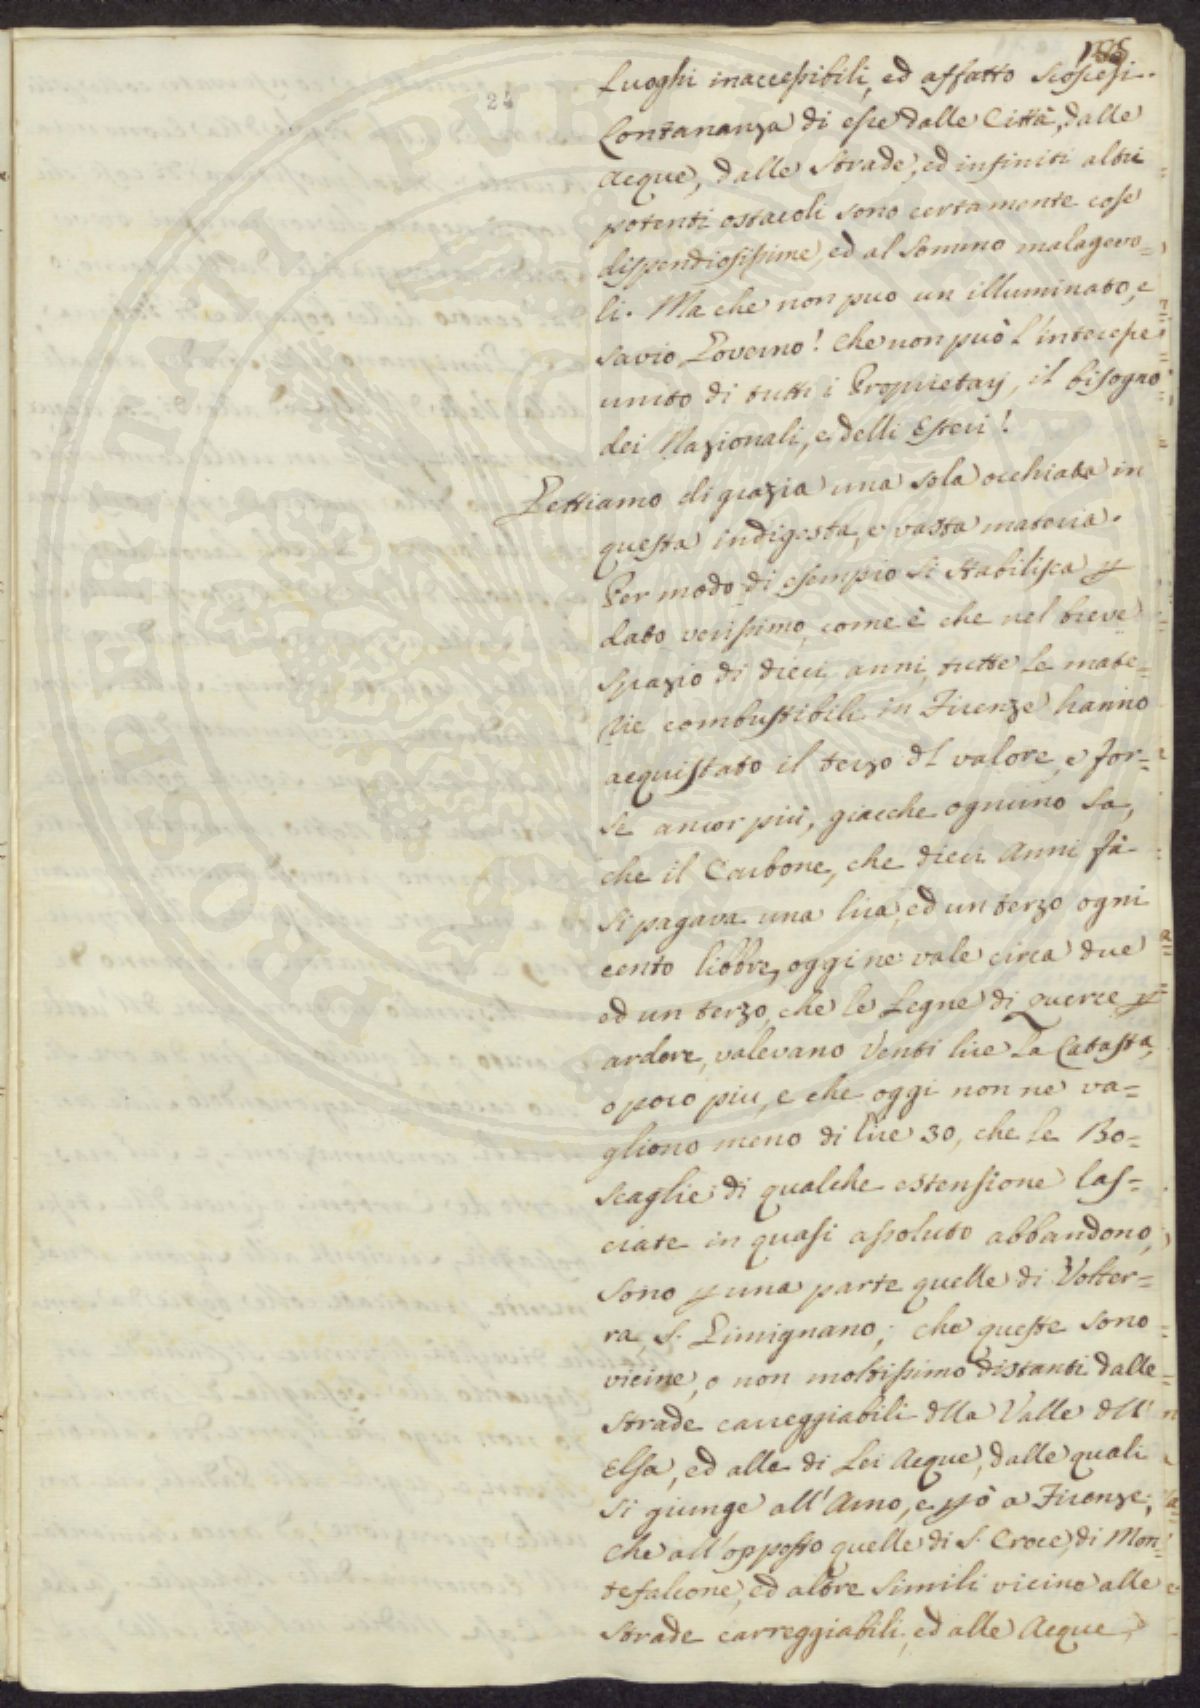 185
24
Luoghi inaccessibili, ed affatto scoscesi.
Lontananza di esse dalle Città, dalle
Acque, dalle Strade, ed infiniti altri
potenti ostacoli sono certamente cose
dispendiosissime, ed al Sommo malagevo=
li. Ma che non puo un illuminato, e
savio Governo! Che non può l'interesse
unito di tutti i Proprietarj, il bisogno
dei Nazionali, e delli Esteri!
Gettiamo di grazia una sola occhiata in
questa indigesta, e vasta materia.
Per modo di esempio si stabilisca p
dato verissimo, come è che nel breve
spazio di dieci anni, tutte le mate=
rie combustibili in Firenze hanno
acquistato il terzo dl valore, e for=
se ancor più, giacche ognuno sa,
che il Carbone, che dieci Anni fà
si pagava una lira, ed un terzo ogni
cento libbre, oggi ne vale circa due
ed un terzo, che le Legne di Querce p
ardere, valevano Venti lire la Catasta,
o poco piu, e che oggi non ne va=
gliono meno di lire 30, che le Bo=
scaglie di qualche estensione las=
ciate in quasi assoluto abbandono,
sono p una parte quelle di Volter=
ra, S. Gimignano; che queste sono
vicine, o non moltissimo distanti dalle
strade carreggiabili dlla Valle dll'
Elsa, ed alle di Lei Acque, dalle quali
si giunge all'Arno, e pò a Firenze;
che all'opposto quelle di S. Croce, di Mon=
tefalcone, ed altre simili vicino alle
strade carreggiabili, ed alle Acque,
PROSPERITATI PVBLICAE